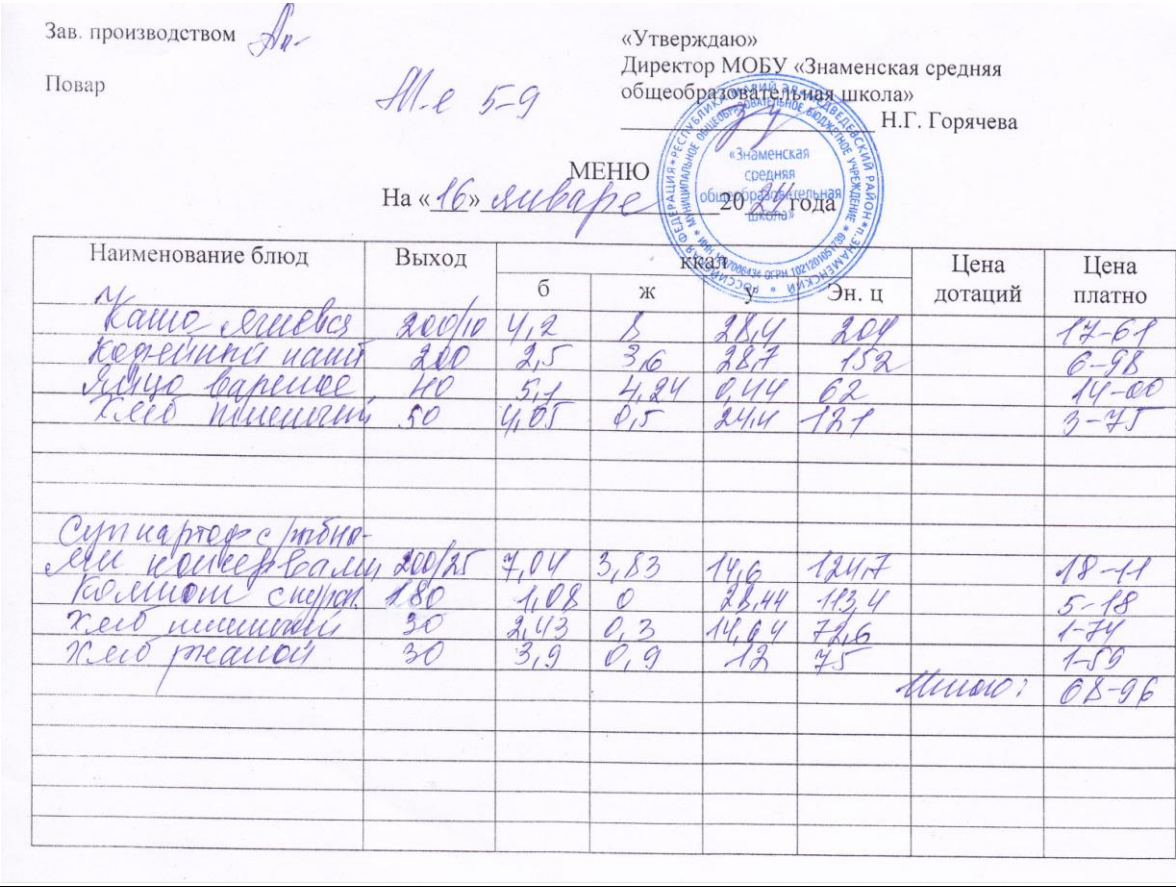 Зав. производством
Повар
5-9
«Утверждаю»
Директор МОБУ «Знаменская средняя
общеобразовательная школа»
Н.Г. Горячева
«Знаменская
средняя
общеобразовательная
школа»
МЕНЮ
На «16» января 2024 года
Наименование блюд Выход ккал Цена дотаций Цена платно
б ж у Эн. ц
Каша ячневая 200/10 4,2 8 28,4 204 17-61
Кофейный напит 200 2,5 3,6 28,7 152 6-98
Яйцо вареное 40 5,1 4,24 0,44 62 14-00
Хлеб пшеничный 50 4,05 0,5 24,4 121 3-75
Суп картоф с рыбны-
ми консервами 200/25 7,04 3,83 14,6 124,7 18-11
Компот 180 1,08 0 28,44 113,4 5-18
Хлеб пшеничный 30 2,43 0,3 14,64 72,6 1-74
Хлеб ржаной 30 3,9 0,9 12 75 1-59
Итого: 68-96